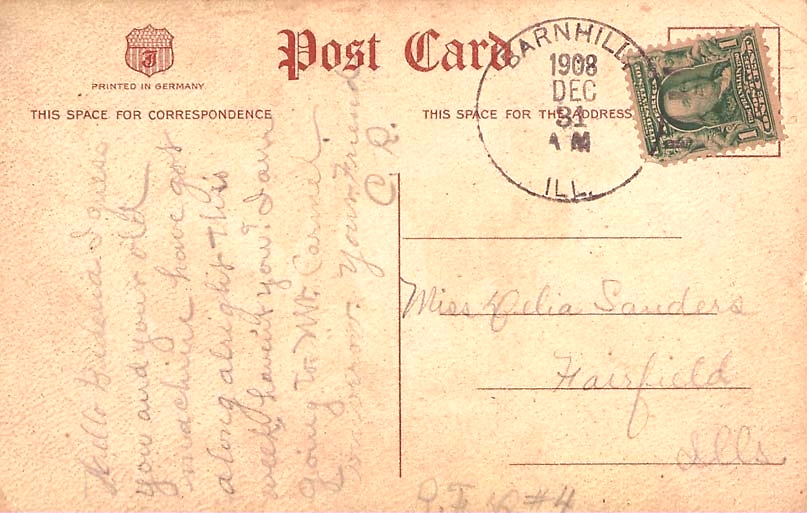 Post Card
PRINTED IN GERMANY
THIS SPACE FOR CORRESPONDENCE
THIS SPACE FOR THE ADDRESS
BARNHILL
1908
DEC
31
A M
ILL.
Hello I guess
you and your old
machine have got
along alright this
week haven't you? I am
going to Mt. Carmel
Your Friend
C. R.
Miss Delia Sanders
Fairfield
Ills
R. F. D #4